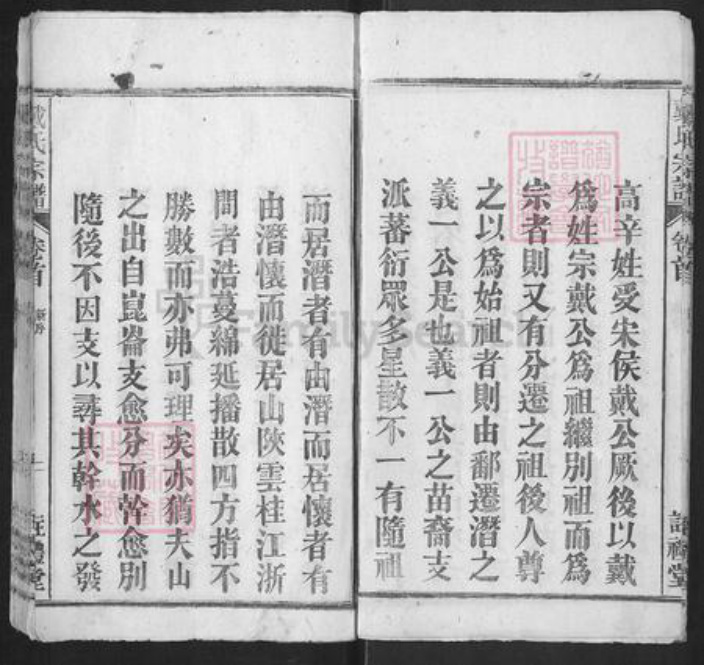 高辛姓受宋侯戴公厥後以戴
爲姓宗戴公爲祖繼別祖而爲
宗者則又有分遷之祖後人尊
之以爲始祖者則由鄱遷潛之
義一公是也義一公之苗裔支
派蕃衍眾多星散不一有隨祖
而居潛者有由潛而居懷者有
由潛懷而徙居山陝雲桂江浙
間者浩蔓綿延播散四方指不
勝數而亦弗可理矣亦猶夫山
之出自崑崙支愈分而幹愈別
隨後不因支以尋其幹水之發
戴氏宗譜
卷首
戴氏宗譜
卷首
註禮堂
FamilySearch